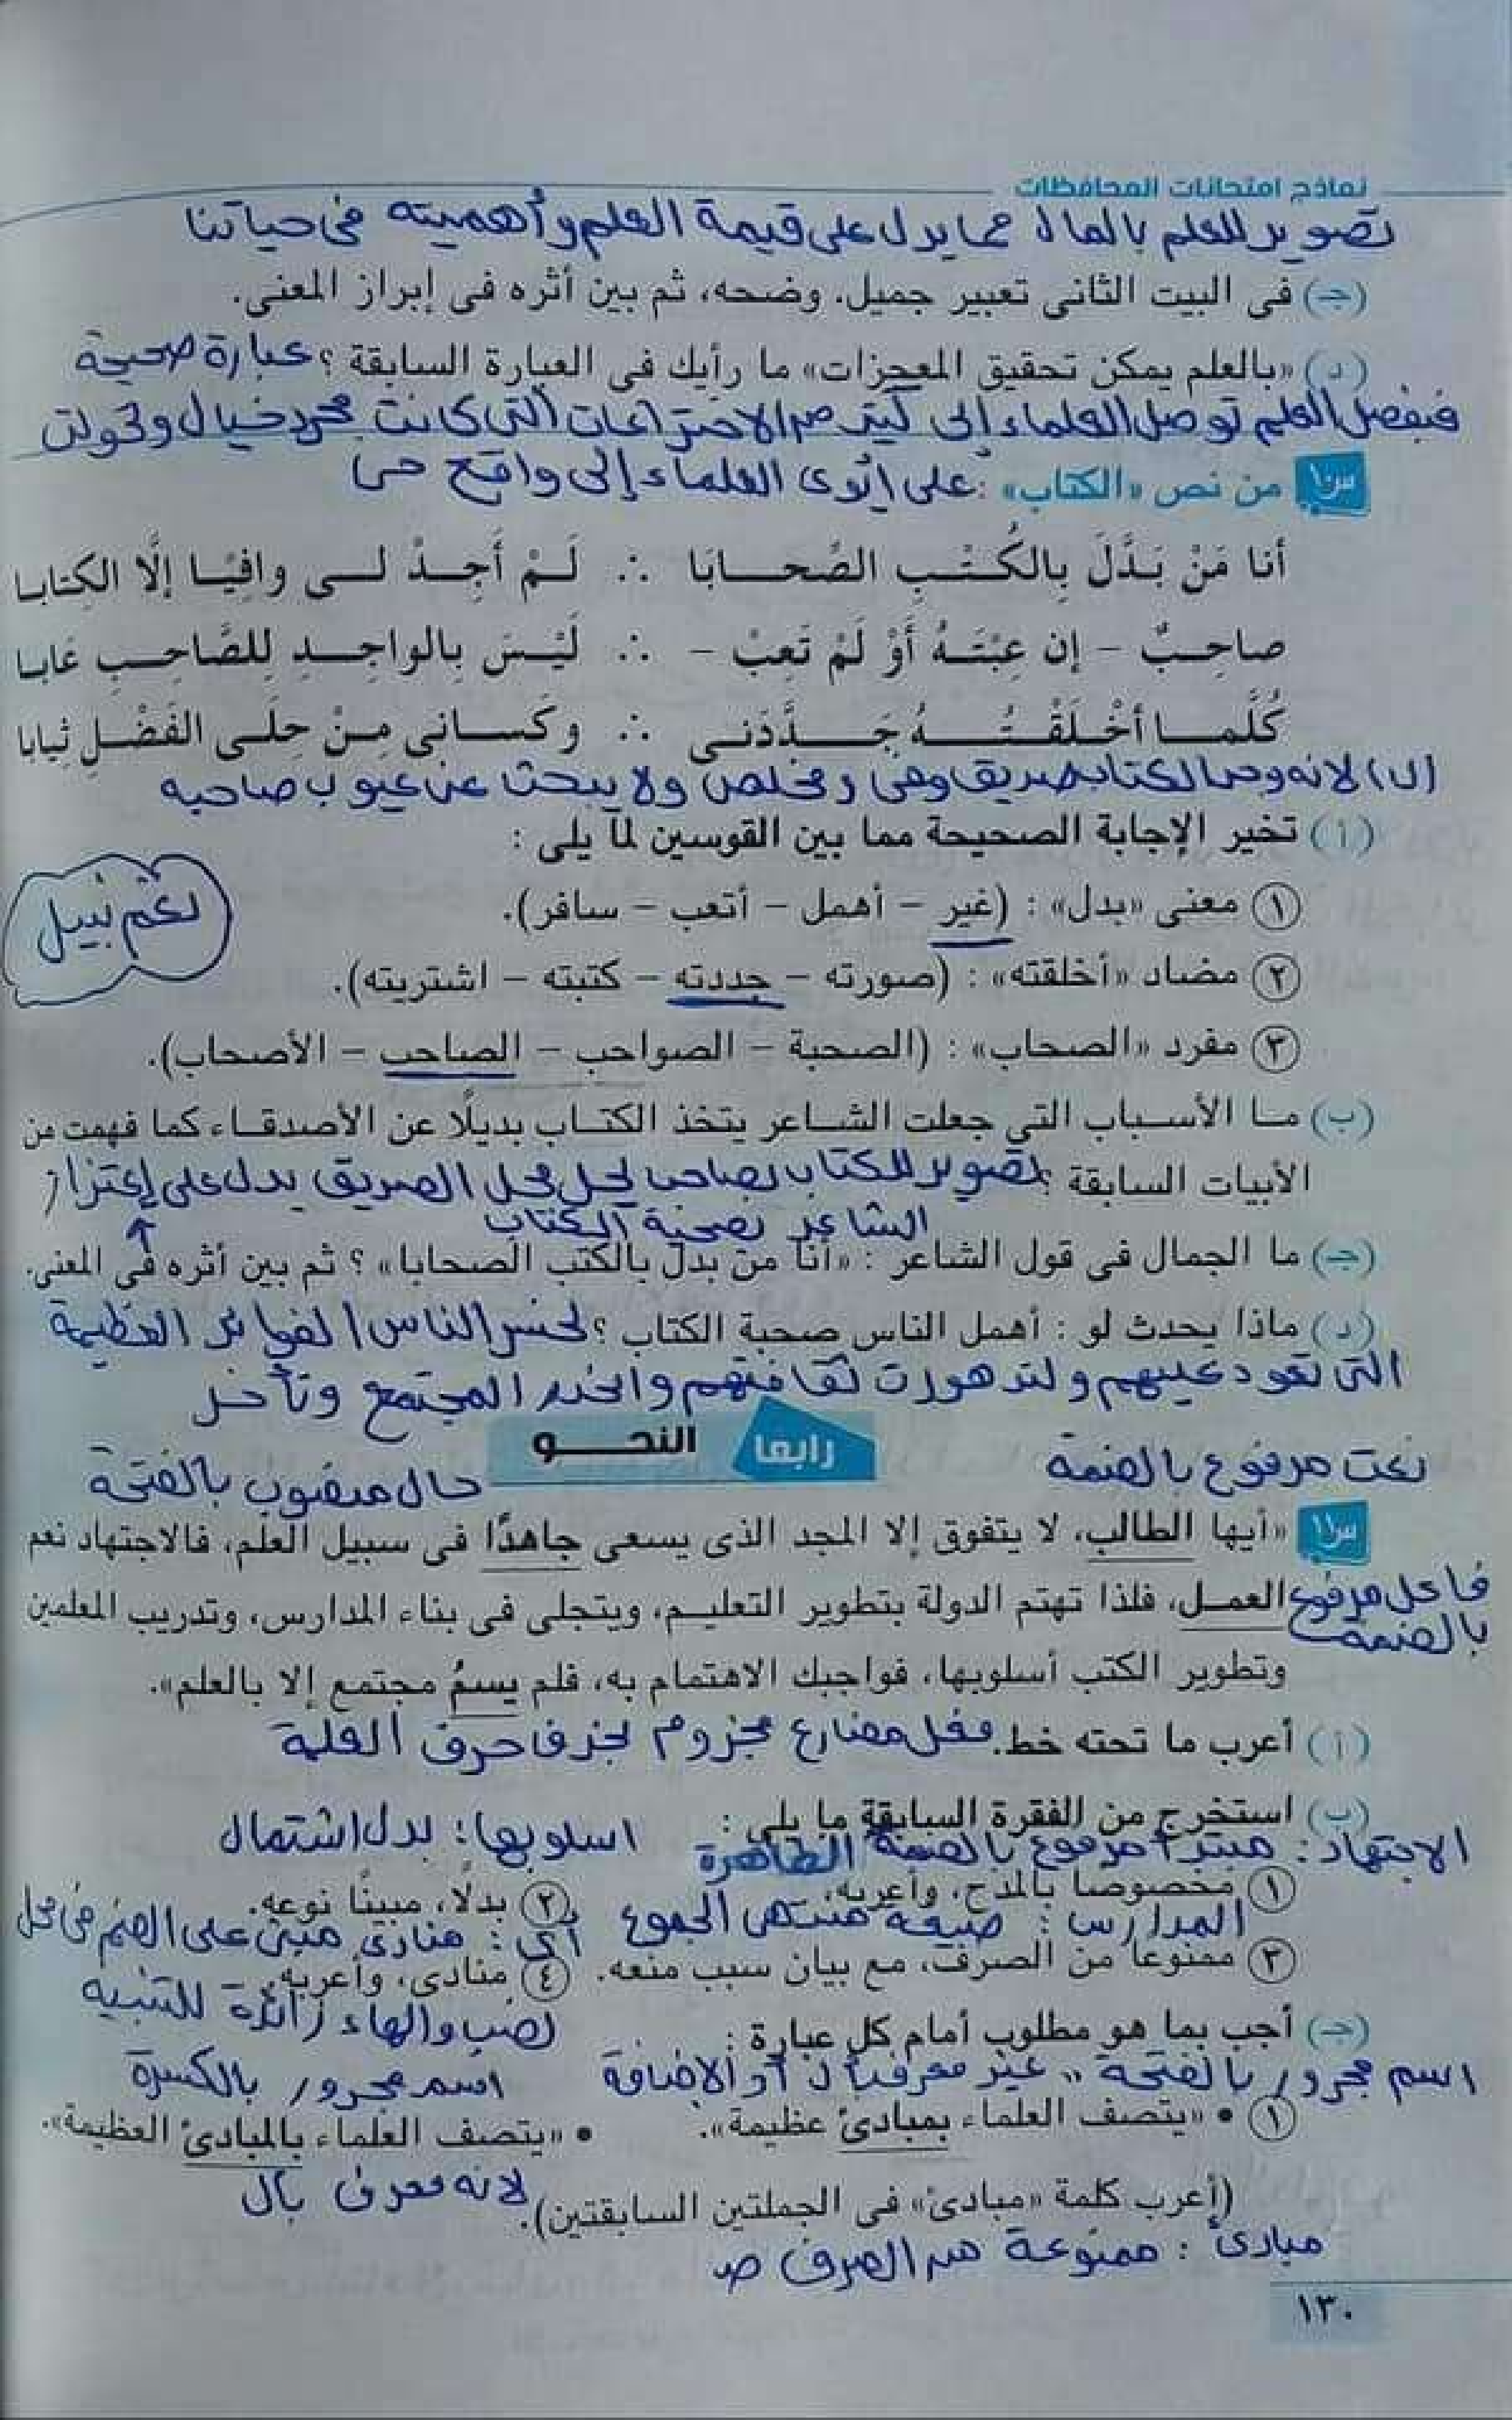 نماذج امتحانات المحافظات
تصوير للعلم بالمال مما يدل على قيمة العلم وأهميته فى حياتنا
(جـ) فى البيت الثانى تعبير جميل. وضحه، ثم بين أثره فى إبراز المعنى.
(د) «بالعلم يمكن تحقيق المعجزات» ما رأيك فى العبارة السابقة ؟ عبارة صحيحة
فبفضل العلم توصل العلماء إلى كثير من الاختراعات التى كانت مجرد خيال وتحولت
س١٠ من نص «الكتاب» : على أيدى العلماء إلى واقع حى
أنا مَنْ بَدَّلَ بِالكُتْبِ الصِّحابَا ∴ لَمْ أَجِدْ لى وافِيًا إلَّا الكِتابا
صاحِبٌ – إن عِبْتَهُ أَوْ لَمْ تَعِبْ – ∴ لَيْسَ بِالواجِدِ لِلصَّاحِبِ عَابا
كُلَّما أخْلَقْتُهُ جَدَّدَنى ∴ وكَسانى مِنْ حِلَى الفَضْلِ ثِيابا
(ب) لانه وجد الكتاب صديق وفى ومخلص ولا يبحث عن عيوب صاحبه
(أ) تخير الإجابة الصحيحة مما بين القوسين لما يلى :
① معنى «بدل» : (غير – أهمل – أتعب – سافر).
لغتى نبيل
② مضاد «أخلقته» : (صورته – جددته – كتبته – اشتريته).
③ مفرد «الصحاب» : (الصحبة – الصواحب – الصاحب – الأصحاب).
(ب) ما الأسباب التى جعلت الشاعر يتخذ الكتاب بديلًا عن الأصدقاء كما فهمت من
الأبيات السابقة ؟ تصوير للكتاب بصاحب يحل محل الصديق يدل على إعتزاز
الشاعر بصحبة الكتاب
(جـ) ما الجمال فى قول الشاعر : «أنا من بدل بالكتب الصحابا» ؟ ثم بين أثره فى المعنى.
(د) ماذا يحدث لو : أهمل الناس صحبة الكتاب ؟ لخسر الناس الفوائد العظيمة
التى تعود عليهم ولتدهورت ثقافتهم وانحدر المجتمع وتأخر
رابعا النحو
نعت مرفوع بالضمة
حال منصوب بالفتحة
س١١ «أيها الطالب، لا يتفوق إلا المجد الذى يسعى جاهدًا فى سبيل العلم، فالاجتهاد نعم
فاعل مرفوع بالضمة
العمل، فلذا تهتم الدولة بتطوير التعليم، ويتجلى فى بناء المدارس، وتدريب المعلمين
وتطوير الكتب أسلوبها، فواجبك الاهتمام به، فلم يسمُ مجتمع إلا بالعلم».
(أ) أعرب ما تحته خط. فعل مضارع مجزوم بحذف حرف العلة
(ب) استخرج من الفقرة السابقة ما يلى :
الاجتهاد : مبتدأ مرفوع بالضمة الظاهرة اسلوبها : بدل اشتمال
① مخصوصًا بالمدح، وأعربه. ② بدلًا، مبينًا نوعه.
المدارس : صيغة منتهى الجموع أى : منادى مبنى على الضم فى محل
③ ممنوعًا من الصرف، مع بيان سبب منعه. ④ منادى، وأعربه.
نصب والهاء زائدة للتنبيه
(جـ) أجب بما هو مطلوب أمام كل عبارة :
اسم مجرور بالفتحة ,, غير معرف بأل أو الاضافة اسم مجرور بالكسرة
① • «يتصف العلماء بمبادئ عظيمة». • «يتصف العلماء بالمبادئ العظيمة».
(أعرب كلمة «مبادئ» فى الجملتين السابقتين). لانه معرف بأل
مبادئ : ممنوعة من الصرف ص
١٣٠